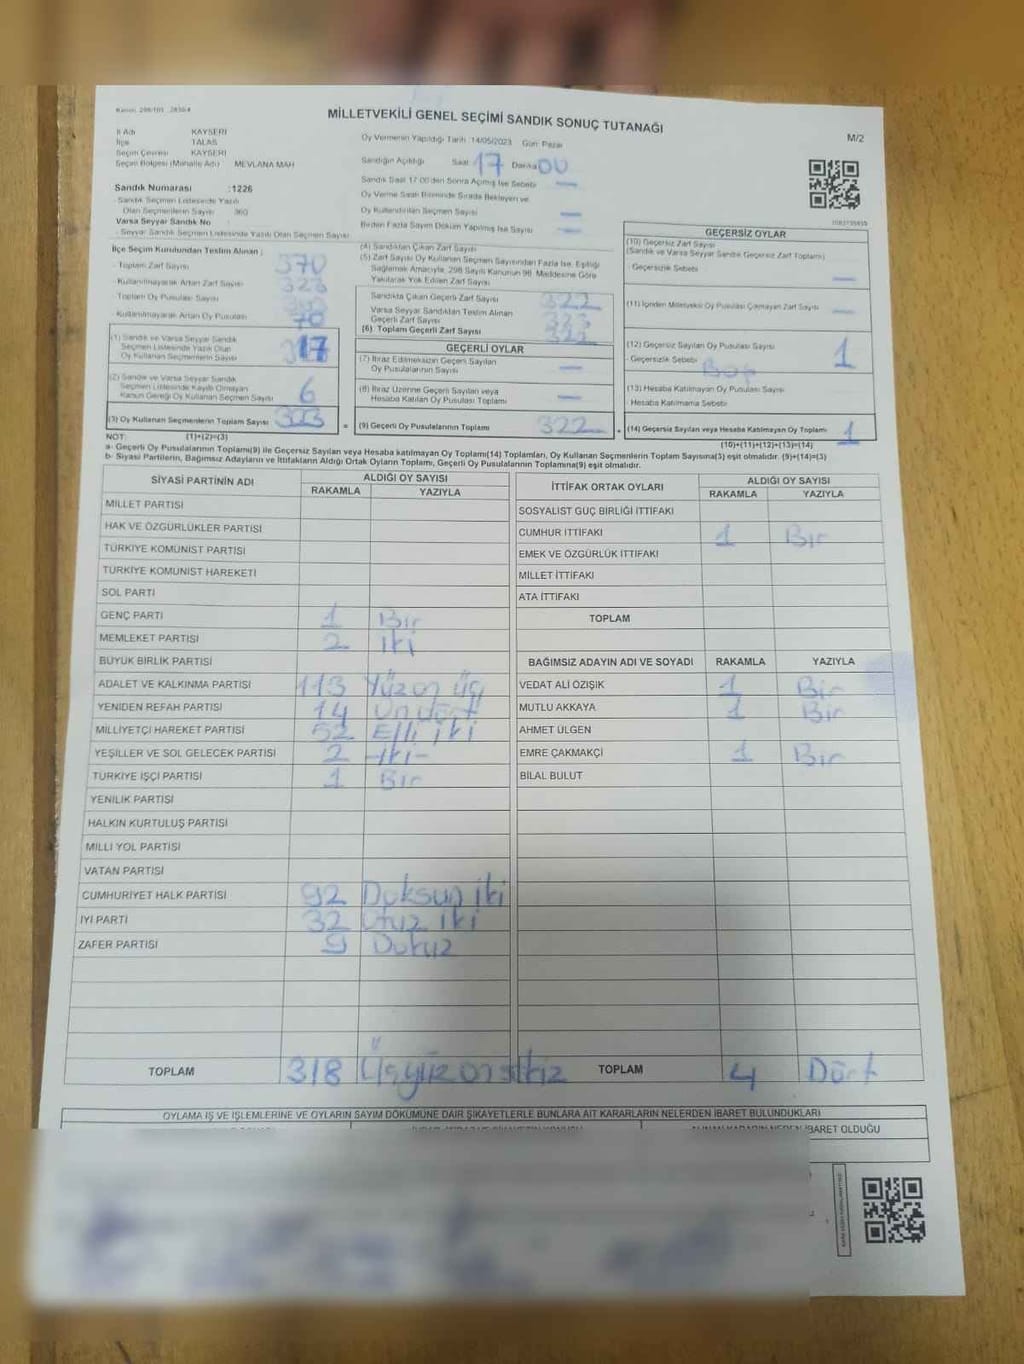 MİLLETVEKİLİ GENEL SEÇİMİ SANDIK SONUÇ TUTANAĞI
M/2
İl Adı KAYSERİ
İlçe TALAS
Seçim Çevresi KAYSERİ
Seçim Bölgesi (Mahalle Adı) MEVLANA MAH
Sandık Numarası :1226
Sandık Seçmen Listesinde Yazılı
Olan Seçmenlerin Sayısı 360
Varsa Seyyar Sandık No
Seyyar Sandık Seçmen Listesinde Yazılı Olan Seçmen Sayısı
Oy Vermenin Yapıldığı Tarih 14/05/2023 Gün Pazar
Sandığın Açıldığı Saat 17 Dakika 00
Sandık Saat 17.00'den Sonra Açılmış İse Sebebi —
Oy Verme Saati Bitiminde Sırada Bekleyen ve
Oy Kullandırılan Seçmen Sayısı —
Birden Fazla Sayım Döküm Yapılmış İse Sayısı —
İlçe Seçim Kurulundan Teslim Alınan ;
Toplam Zarf Sayısı 370
Kullanılmayarak Artan Zarf Sayısı
Toplam Oy Pusulası Sayısı
Kullanılmayarak Artan Oy Pusulası
(1) Sandık ve Varsa Seyyar Sandık
Seçmen Listesinde Yazılı Olup
Oy Kullanan Seçmenlerin Sayısı 317
(2) Sandık ve Varsa Seyyar Sandık
Seçmen Listesinde Kayıtlı Olmayan
Kanun Gereği Oy Kullanan Seçmen Sayısı 6
(3) Oy Kullanan Seçmenlerin Toplam Sayısı 323
(4) Sandıktan Çıkan Zarf Sayısı
(5) Zarf Sayısı Oy Kullanan Seçmen Sayısından Fazla İse, Eşitliği
Sağlamak Amacıyla, 298 Sayılı Kanunun 98. Maddesine Göre
Yakılarak Yok Edilen Zarf Sayısı
Sandıkta Çıkan Geçerli Zarf Sayısı 322
Varsa Seyyar Sandıktan Teslim Alınan
Geçerli Zarf Sayısı
(6) Toplam Geçerli Zarf Sayısı 322
GEÇERLİ OYLAR
(7) İtiraz Edilmeksizin Geçerli Sayılan
Oy Pusulalarının Sayısı —
(8) İtiraz Üzerine Geçerli Sayılan veya
Hesaba Katılan Oy Pusulası Toplamı —
= (9) Geçerli Oy Pusulalarının Toplamı 322
GEÇERSİZ OYLAR
(10) Geçersiz Zarf Sayısı
(Sandık ve Varsa Seyyar Sandık Geçersiz Zarf Toplamı)
Geçersizlik Sebebi —
(11) İçinden Milletvekili Oy Pusulası Çıkmayan Zarf Sayısı —
(12) Geçersiz Sayılan Oy Pusulası Sayısı 1
Geçersizlik Sebebi Boş
(13) Hesaba Katılmayan Oy Pusulası Sayısı
Hesaba Katılmama Sebebi
+ (14) Geçersiz Sayılan veya Hesaba Katılmayan Oy Toplamı 1
NOT: (1)+(2)=(3)
(10)+(11)+(12)+(13)=(14)
a- Geçerli Oy Pusulalarının Toplamı(9) ile Geçersiz Sayılan veya Hesaba katılmayan Oy Toplamı(14) Toplamları, Oy Kullanan Seçmenlerin Toplam Sayısına(3) eşit olmalıdır. (9)+(14)=(3)
b- Siyasi Partilerin, Bağımsız Adayların ve İttifakların Aldığı Ortak Oyların Toplamı, Geçerli Oy Pusulalarının Toplamına(9) eşit olmalıdır.
SİYASİ PARTİNİN ADI ALDIĞI OY SAYISI
RAKAMLA YAZIYLA
MİLLET PARTİSİ
HAK VE ÖZGÜRLÜKLER PARTİSİ
TÜRKİYE KOMÜNİST PARTİSİ
TÜRKİYE KOMÜNİST HAREKETİ
SOL PARTİ
GENÇ PARTİ 1 Bir
MEMLEKET PARTİSİ 2 İki
BÜYÜK BİRLİK PARTİSİ
ADALET VE KALKINMA PARTİSİ 113 Yüzon üç
YENİDEN REFAH PARTİSİ 14 Ondört
MİLLİYETÇİ HAREKET PARTİSİ 52 Elli iki
YEŞİLLER VE SOL GELECEK PARTİSİ 2 -İki-
TÜRKİYE İŞÇİ PARTİSİ 1 Bir
YENİLİK PARTİSİ
HALKIN KURTULUŞ PARTİSİ
MİLLİ YOL PARTİSİ
VATAN PARTİSİ
CUMHURİYET HALK PARTİSİ 92 Doksan iki
İYİ PARTİ 32 Otuz iki
ZAFER PARTİSİ 9 Dokuz
TOPLAM 318 Üçyüzonsekiz
İTTİFAK ORTAK OYLARI ALDIĞI OY SAYISI
RAKAMLA YAZIYLA
SOSYALİST GÜÇ BİRLİĞİ İTTİFAKI
CUMHUR İTTİFAKI 1 Bir
EMEK VE ÖZGÜRLÜK İTTİFAKI
MİLLET İTTİFAKI
ATA İTTİFAKI
TOPLAM
BAĞIMSIZ ADAYIN ADI VE SOYADI RAKAMLA YAZIYLA
VEDAT ALİ ÖZIŞIK 1 Bir
MUTLU AKKAYA 1 Bir
AHMET ÜLGEN
EMRE ÇAKMAKÇİ 1 Bir
BİLAL BULUT
TOPLAM 4 Dört
OYLAMA İŞ VE İŞLEMLERİNE VE OYLARIN SAYIM DÖKÜMÜNE DAİR ŞİKAYETLERLE BUNLARA AİT KARARLARIN NELERDEN İBARET BULUNDUKLARI
İBARET OLDUĞU